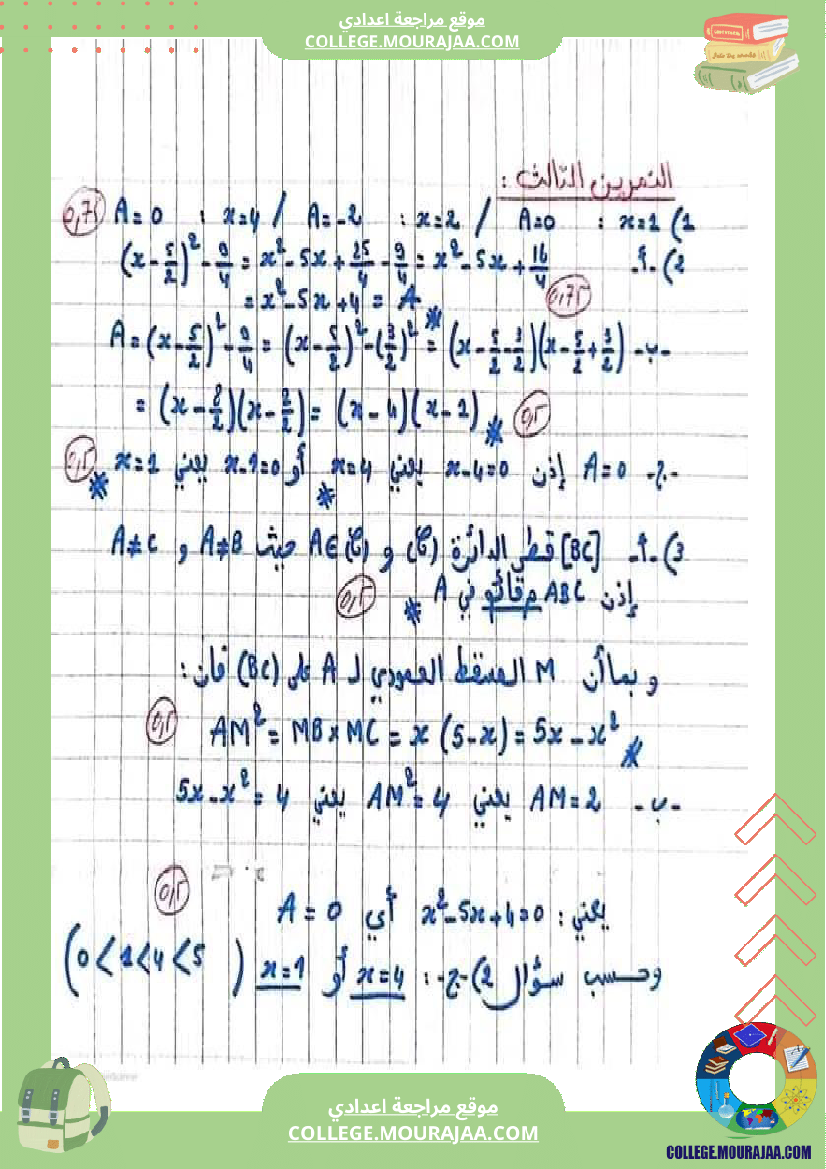 موقع مراجعة اعدادي
COLLEGE.MOURAJAA.COM
التمرين الثالث :
1) x=1 : A=0 / x=2 : A=-2 / x=4 : A=0 0,75
2) أ- (x-5/2)² - 9/4 = x² - 5x + 25/4 - 9/4 = x² - 5x + 16/4
= x² - 5x + 4 = A 0,75
ب- A = (x-5/2)² - 9/4 = (x-5/2)² - (3/2)² = (x-5/2-3/2)(x-5/2+3/2)
= (x-8/2)(x-2/2) = (x-4)(x-1) 0,5
ج- A=0 إذن x-4=0 يعني x=4 أو x-1=0 يعني x=1 0,5
3) أ- [BC] قطر الدائرة (C) و A∈(C) حيث A≠B و A≠C
إذن ABC م قائم في A 0,5
و بما أن M المسقط العمودي لـ A على (BC) فان :
AM² = MB×MC = x(5-x) = 5x-x² 0,5
ب- AM=2 يعني AM²=4 يعني 5x-x²=4
0,5
يعني : x²-5x+4=0 أي A=0
وحسب سؤال 2) ج- : x=4 أو x=1 (0<1<4<5)
موقع مراجعة اعدادي
COLLEGE.MOURAJAA.COM
COLLEGE.MOURAJAA.COM